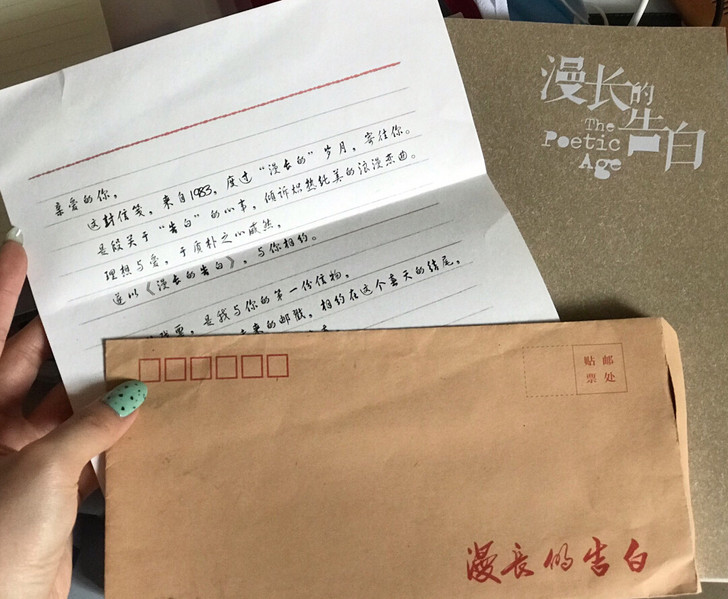 漫长的
告白
The
Poetic
Age
亲爱的你,
这封信笺,来自1983,度过“漫长的”岁月,寄往你。
是段关于“告白”的心事,倾诉炽热纯美的浪漫恋曲。
理想与爱,于质朴之心
遂以《漫长的告白》,与你相约。
是我与你的第一份信物,
来的邮戳,相约在这个春天的结尾,
贴 邮
票 处
漫長的告白